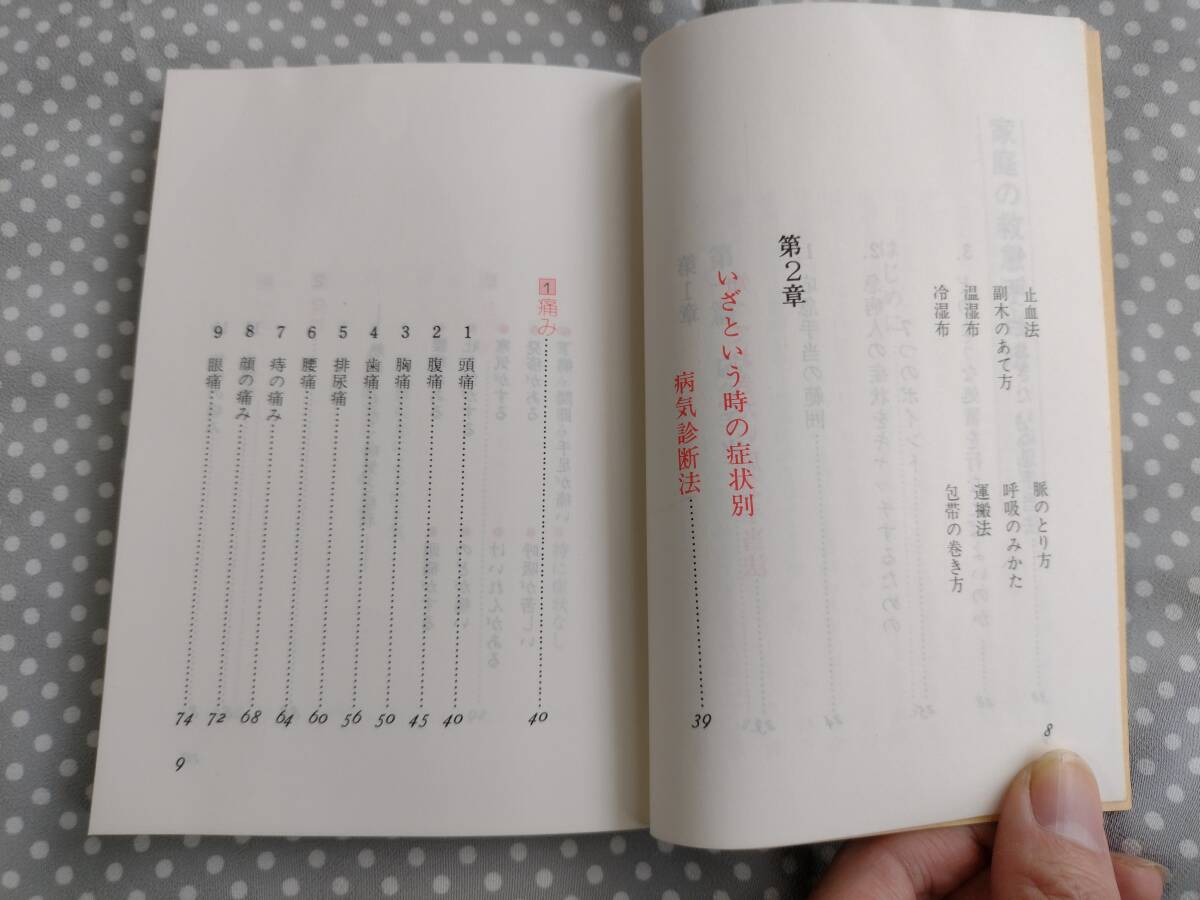 止血法
副木のあて方
温湿布
冷湿布
脈のとり方
呼吸のみかた
運搬法
包帯の巻き方
第2章
いざという時の症状別
病気診断法……39
8
1 痛み……40
1 頭痛……40
2 腹痛……45
3 胸痛……50
4 歯痛……56
5 排尿痛……60
6 腰痛……64
7 痔の痛み……68
8 顔の痛み……72
9 眼痛……74
9